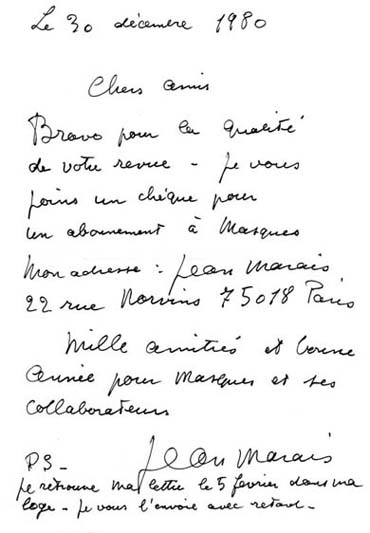 Le 30 décembre 1980
Chers amis
Bravo pour la qualité
de votre revue - je vous
joins un chèque pour
un abonnement à Masques
Mon adresse : Jean Marais
22 rue Norvins 75018 Paris
Mille amitiés et bonne
année pour Masques et ses
collaborateurs
Jean Marais
PS -
je retrouve ma lettre le 5 février dans ma
loge - je vous l'envoie avec retard -